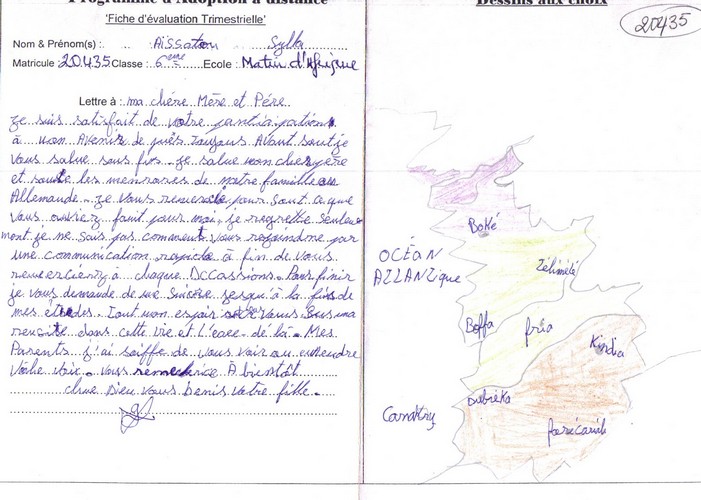 Programme d'Adoption à distance
'Fiche d'évaluation Trimestrielle'
Nom & Prénom(s) : Aissatou Sylla
Matricule : 20435 Classe : 6eme Ecole : Matin d'Afrique
Lettre à : ma chère Mère et Père
je suis satisfait de votre participation
à mon Avenir de près Toujours Avant tout je
vous salue sans fois je salue mon cher père
et toute les membres de notre famille en
Allemande. je vous remercie pour tout ce que
vous ouvriez fait pour moi, je regrette seule
ment je ne sais pas comment vous rejoindre par
une communication rapide à fin de vous
remercier à chaque Occassions. Pour finir
je vous demande de me suivre jusqu'à la fin de
mes études. Tout mon espoir Vous ma
reussite dans cette vie et l'eau de là. Mes
Parents j'ai soiffe de vous voir ou entendre
Votre voix. vous remercie À bientôt
que Dieu vous benis Votre fille.
Dessins aux choix
20435
Boké
OCÉAN
ATLANTique
Télimélé
Boffa
fria
Kindia
Dubréka
Conakry
forécariah